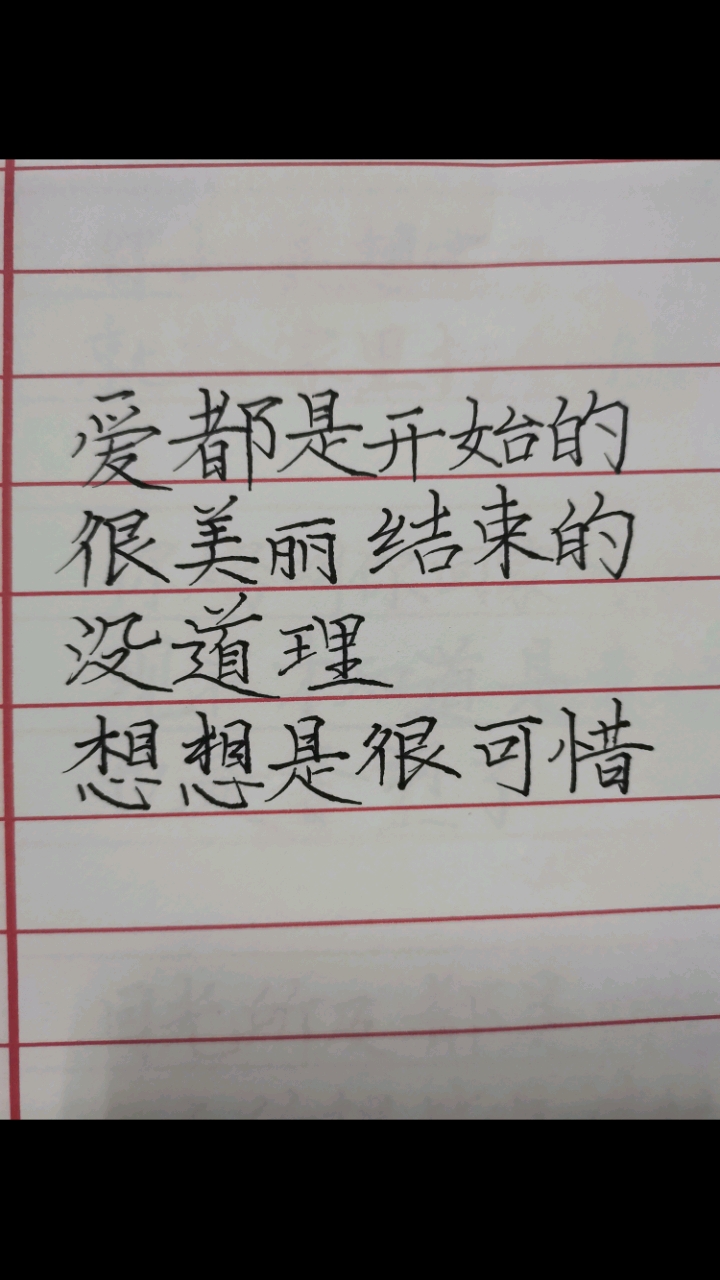 爱都是开始的
很美丽结束的
没道理
想想是很可惜